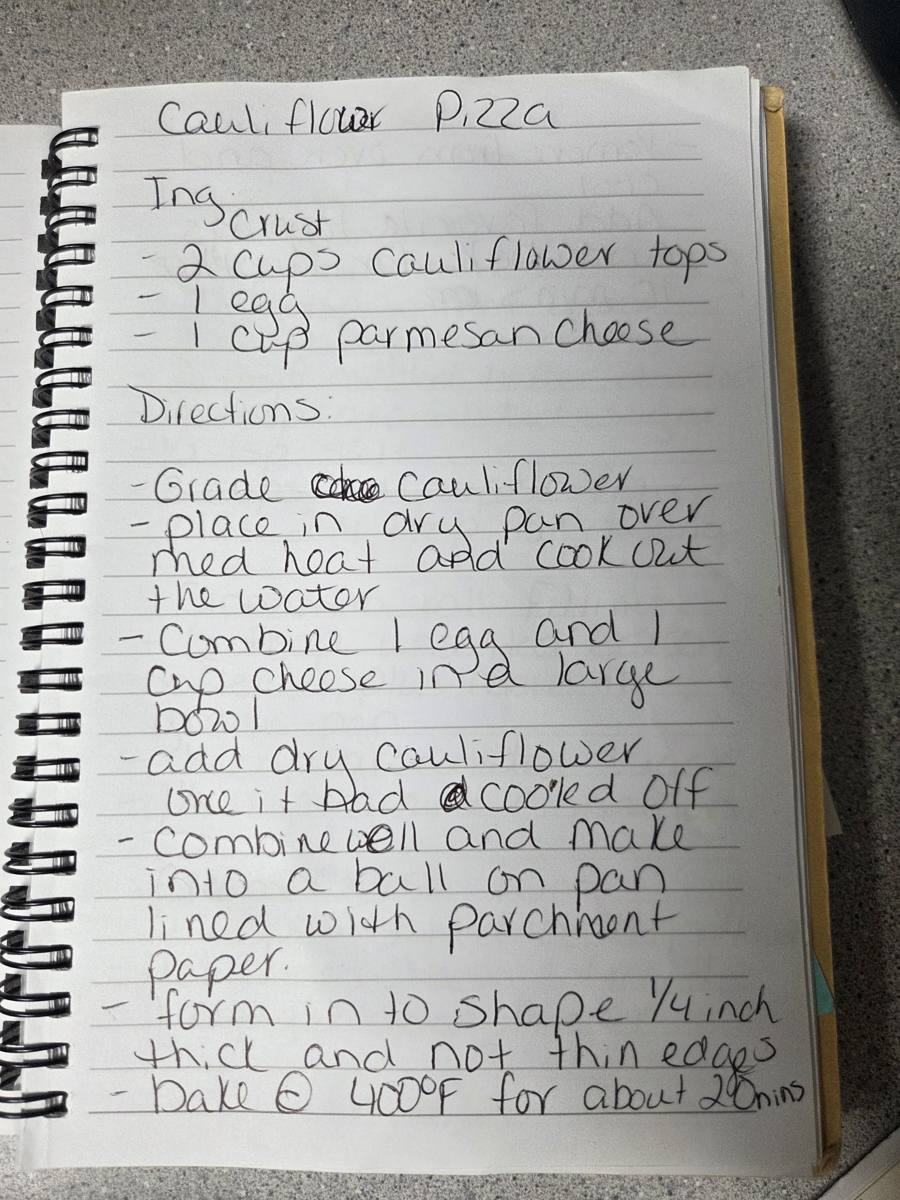 Cauliflower Pizza
Ing.
Crust
- 2 cups cauliflower tops
- 1 egg
- 1 cup parmesan cheese
Directions:
- Grade cauliflower
- place in dry pan over
med heat and cook out
the water
- Combine 1 egg and 1
cup cheese in a large
bowl
- add dry cauliflower
once it had cooled off
- combine well and make
into a ball on pan
lined with parchment
paper.
- form in to shape 1/4 inch
thick and not thin edges
- bake @ 400°F for about 20 mins